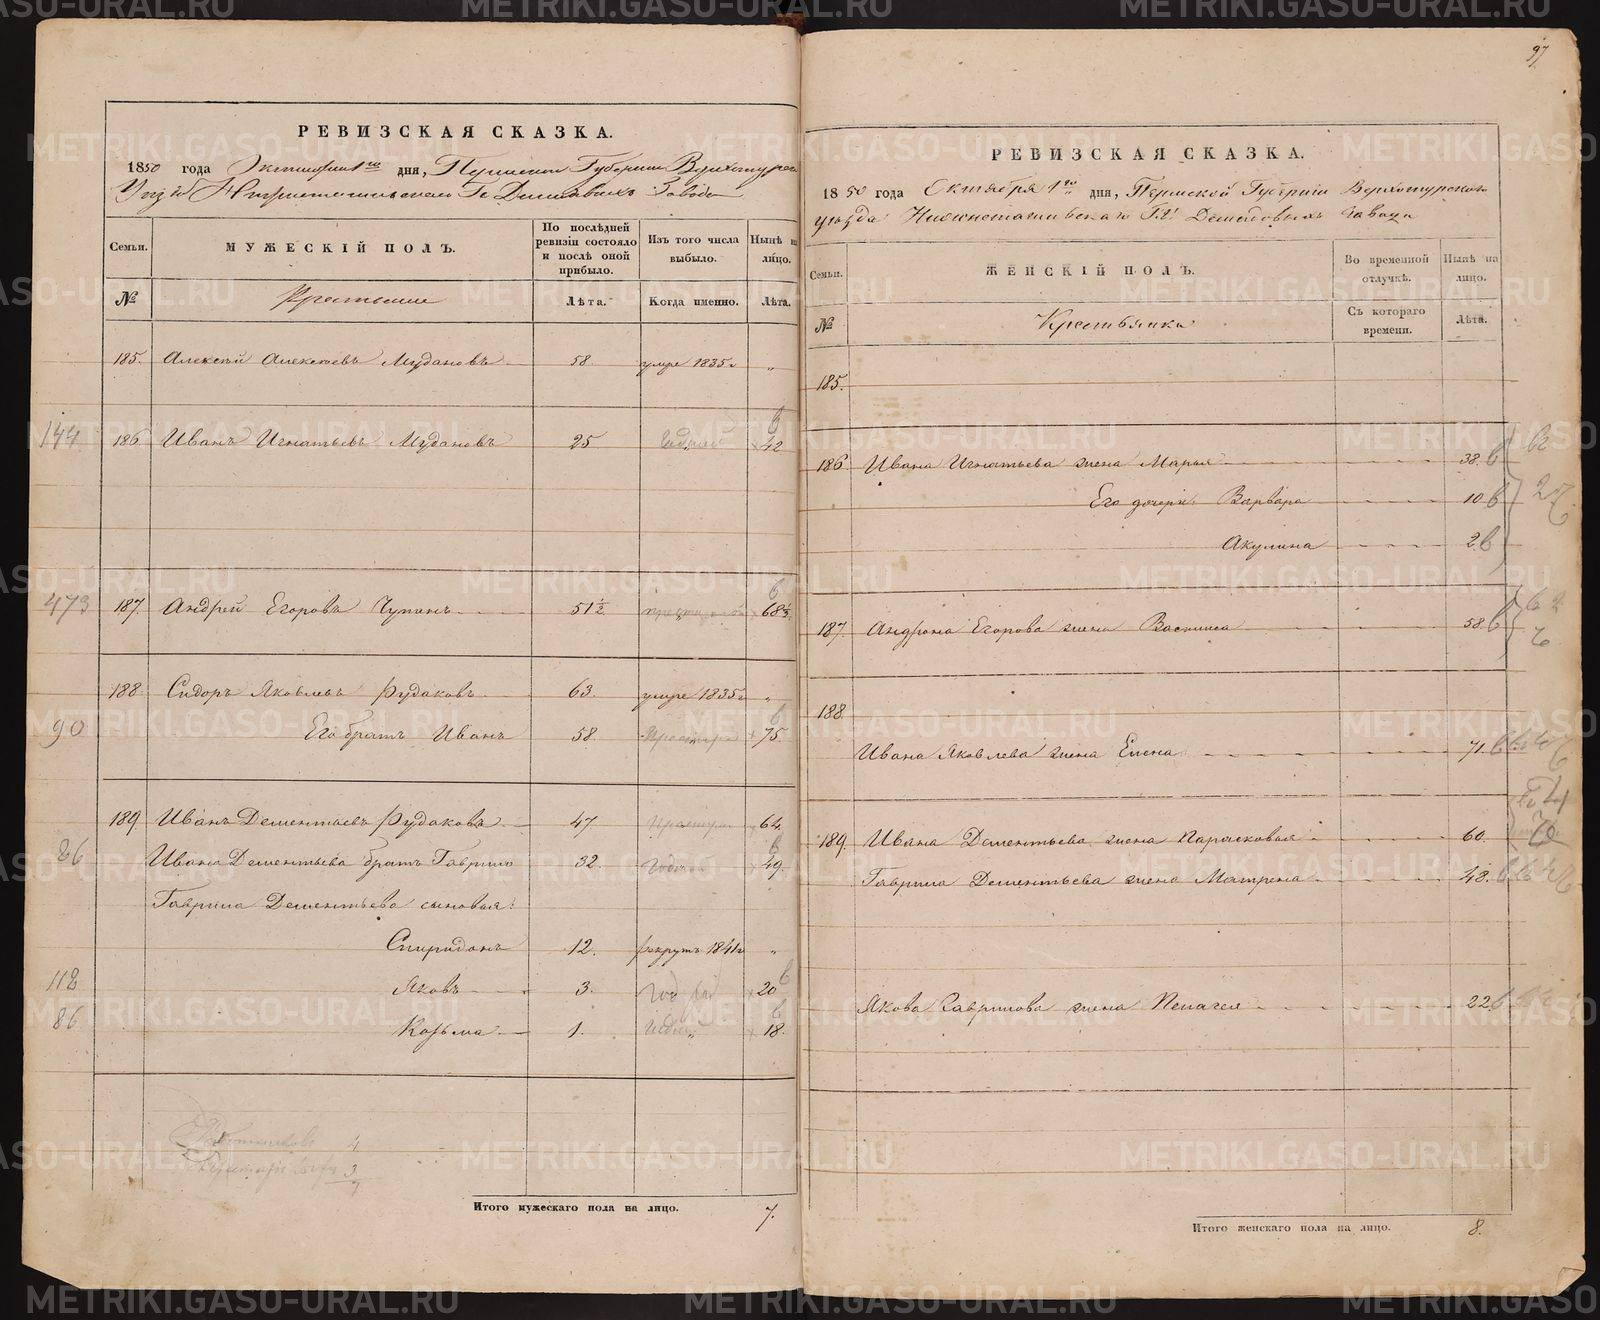 97
РЕВИЗСКАЯ СКАЗКА.
1850 года Октября 1го дня, Пермской Губернии Верхотурскаго
Уезда Нижнетагильскаго Гг Демидовыхъ Завода
Семьи.
МУЖЕСКІЙ ПОЛЪ.
По послѣдней ревизіи состояло и послѣ оной прибыло.
Изъ того числа выбыло.
Нынѣ на лицо.
№
Крестьяне
Лѣта.
Когда именно.
Лѣта.
185. Алексѣй Алексѣевъ Мудановъ 58. умре 1835г „
144 186 Иванъ Игнатьевъ Мудановъ 25 42
473 187. Андрей Егоровъ Чупинъ 51½ 68½
188. Сидоръ Яковлевъ Рудаковъ 63. умре 1835г „
90 Его братъ Иванъ 58. 75.
189. Иванъ Дементьевъ Рудаковъ 47 64.
86 Ивана Дементьева братъ Гаврило 32. 49.
Гаврила Дементьева сыновья:
Спиридонъ 12. рекрутъ 1841г „
118 Яковъ 3. 20
86 Козьма 1. 18.
4
3
7
Итого мужескаго пола на лицо. 7.
РЕВИЗСКАЯ СКАЗКА.
1850 года Октября 1го дня, Пермской Губерніи Верхотурскаго
уѣзда Нижнетагильскаго Гг. Демидовыхъ завода
Семьи.
ЖЕНСКІЙ ПОЛЪ.
Во временной отлучкѣ.
Нынѣ на лицо.
№
Крестьянки
Съ котораго времени.
Лѣта.
185.
186. Ивана Игнатьева жена Марья 38.
Его дочери: Варвара 10
Акулина 2
187. Андрона Егорова жена Василиса 58.
188.
Ивана Яковлева жена Елена 71.
189. Ивана Дементьева жена Парасковья 60.
Гаврила Дементьева жена Матрена 48.
Якова Гаврилова жена Пелагея 22
Итого женскаго пола на лицо. 8.
METRIKI.GASO-URAL.RU